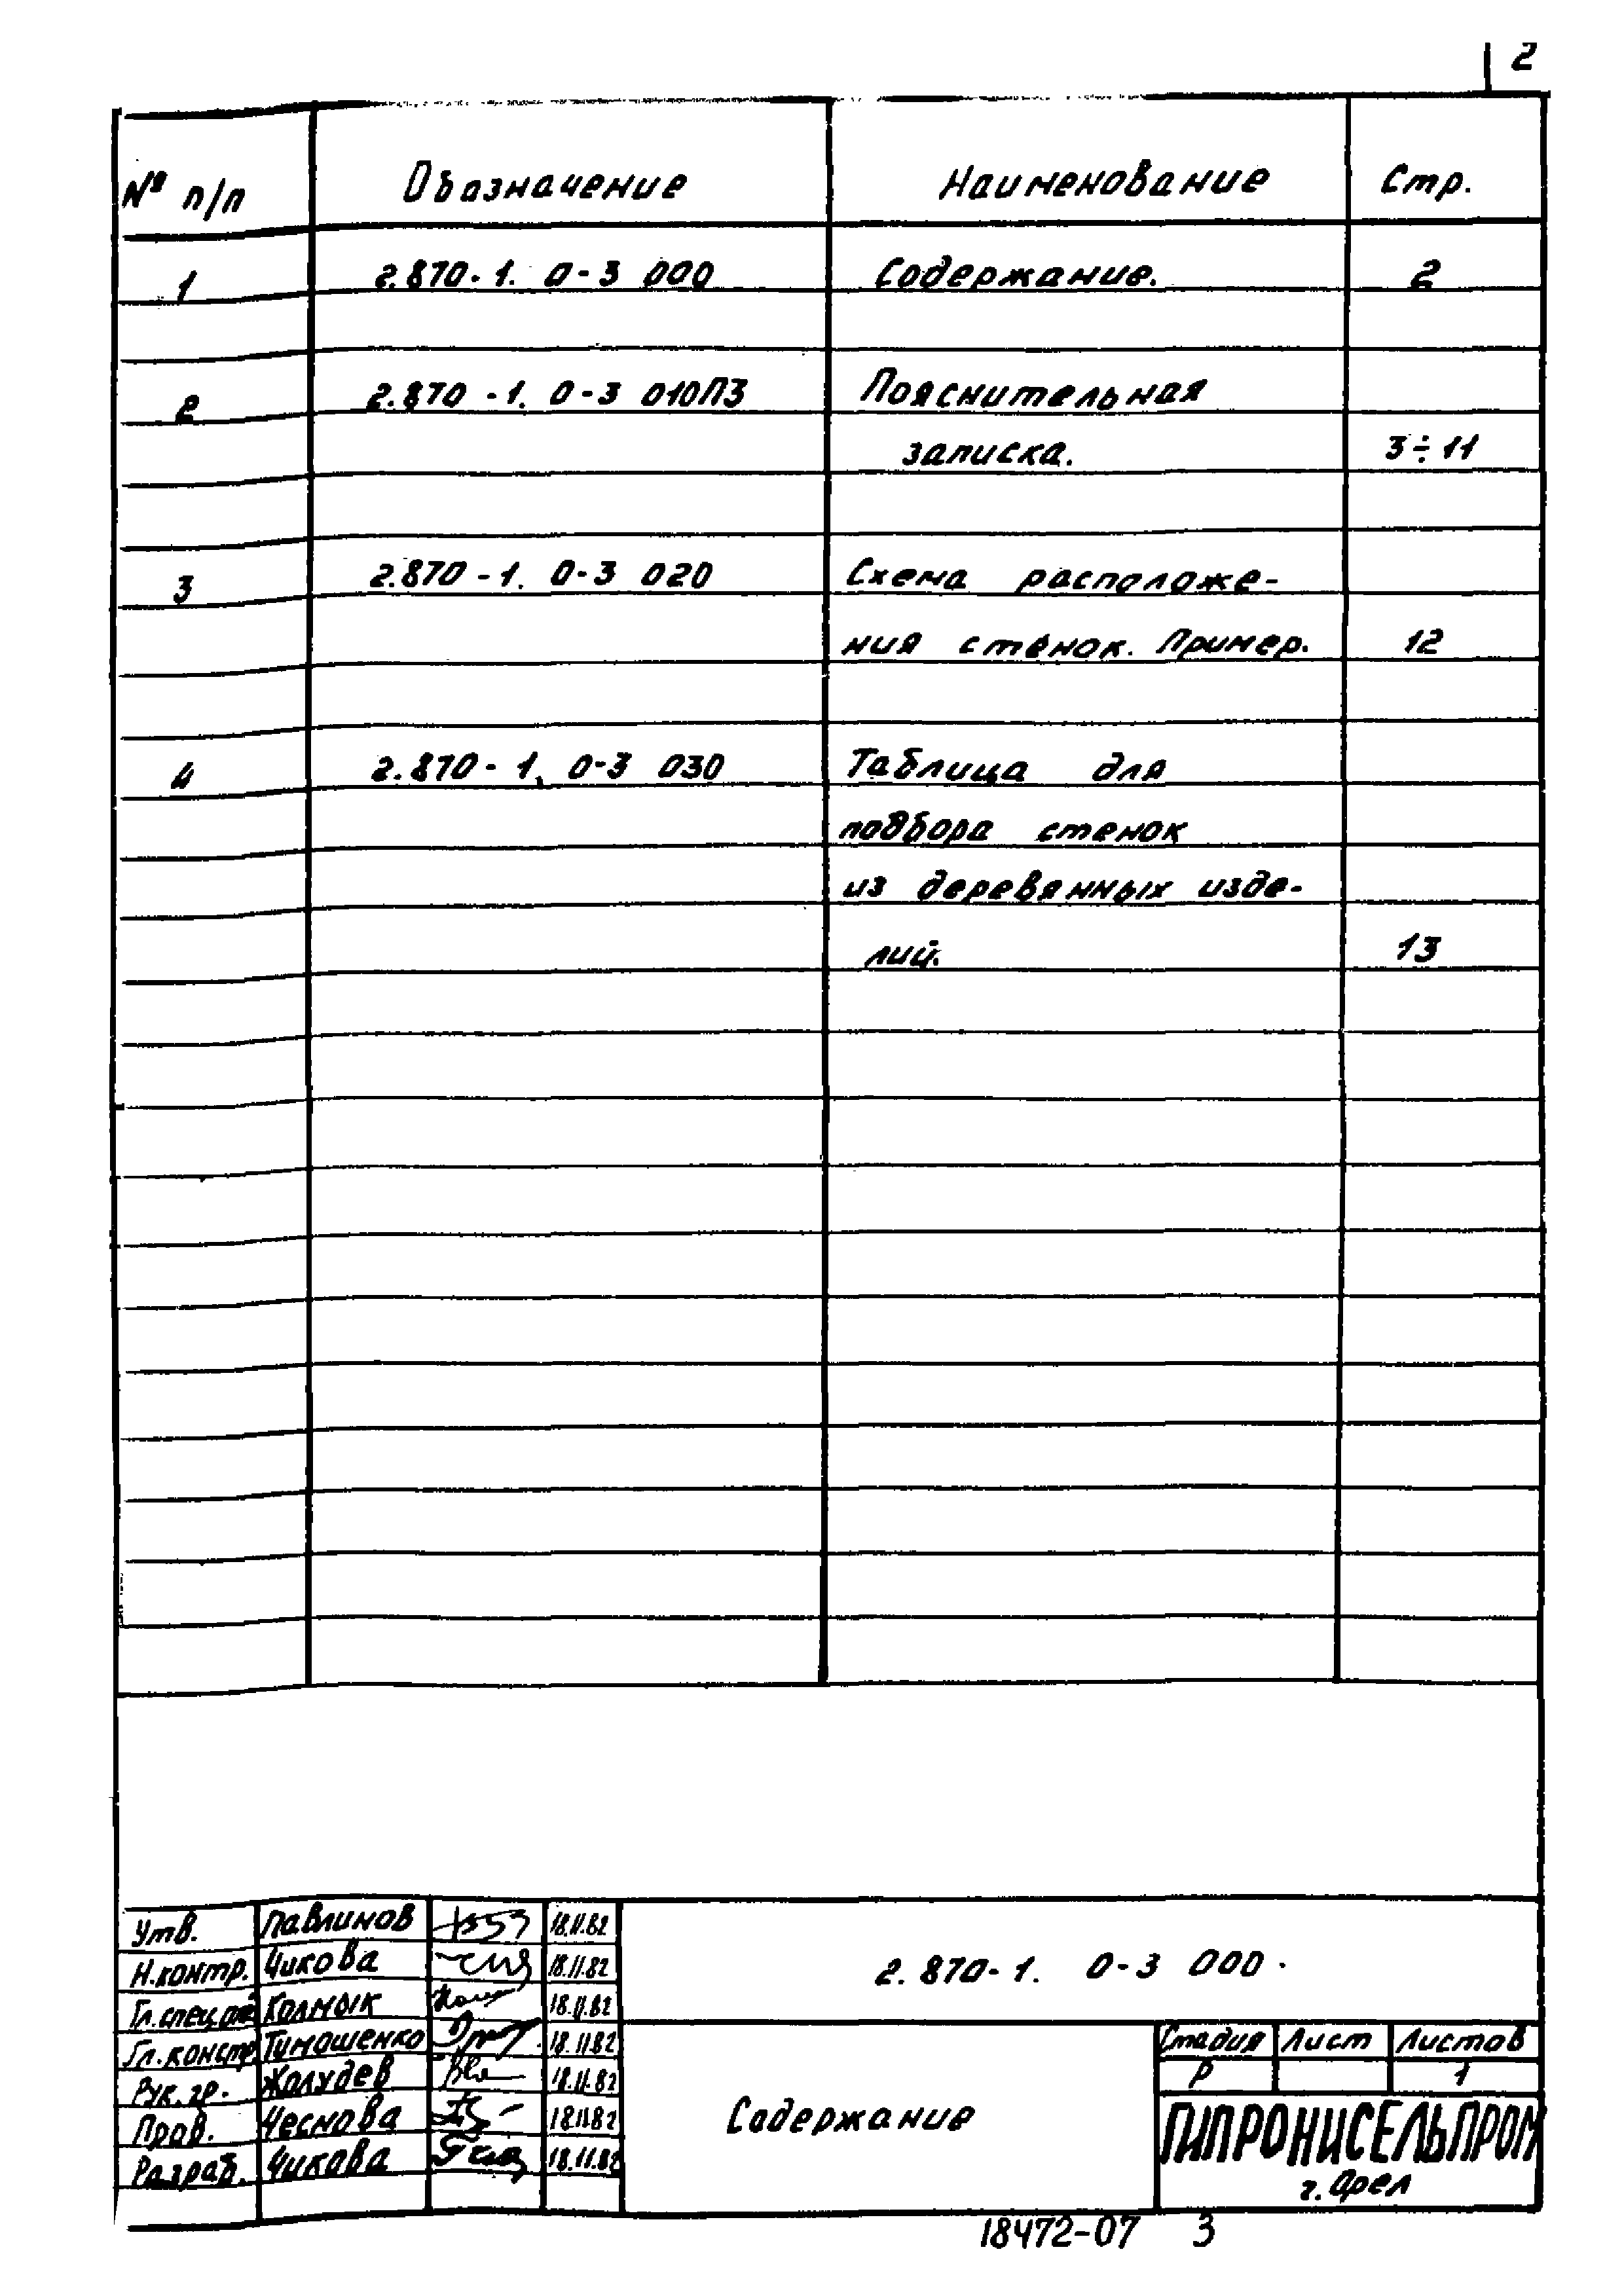 2
№ п/п Обозначение Наименование Стр.
1 2.870-1. 0-3 000 Содержание. 2
2 2.870-1. 0-3 010ПЗ Пояснительная
записка. 3÷11
3 2.870-1. 0-3 020 Схема расположе-
ния стенок. Пример. 12
4 2.870-1. 0-3 030 Таблица для
подбора стенок
из деревянных изде-
лий. 13
Утв. Павлинов 18.11.82
Н.контр. Чикова 18.11.82
Гл.спец. Колмык 18.11.82
Гл.констр Тимошенко 18.11.82
Рук.гр. Жолудев 18.11.82
Пров. Чеснова 18.11.82
Разраб. Чикова 18.11.82
2.870-1. 0-3 000.
Содержание
Стадия Лист Листов
Р 1
ГИПРОНИСЕЛЬПРОМ
г.Орел
18472-07 3